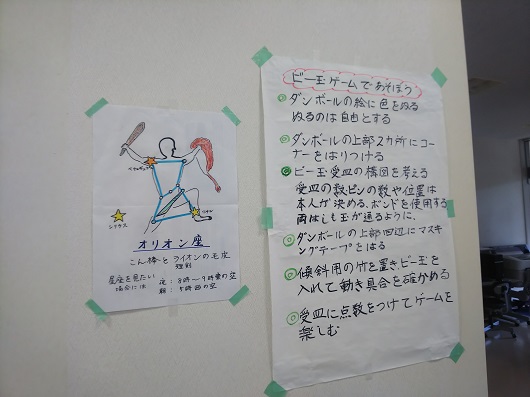 オリオン座
こん棒とライオンの毛皮
星座を見たい
場合には
夜：8時〜9時東の空
ビー玉ゲームであそぼう
ダンボールの絵に色をぬる
ぬるのは自由とする
ダンボールの上部2カ所にコー
ナーをはりつける
ビー玉受皿の構図を考える
受皿の数ピンの数や位置は
本人が決める、ボンドを使用する
両はしも玉が通るように、
ダンボールの上部四辺にマスキ
ングテープをはる
傾斜用の竹を置きビー玉を
入れて動き具合を確かめる
受皿に点数をつけてゲームを
楽しむ